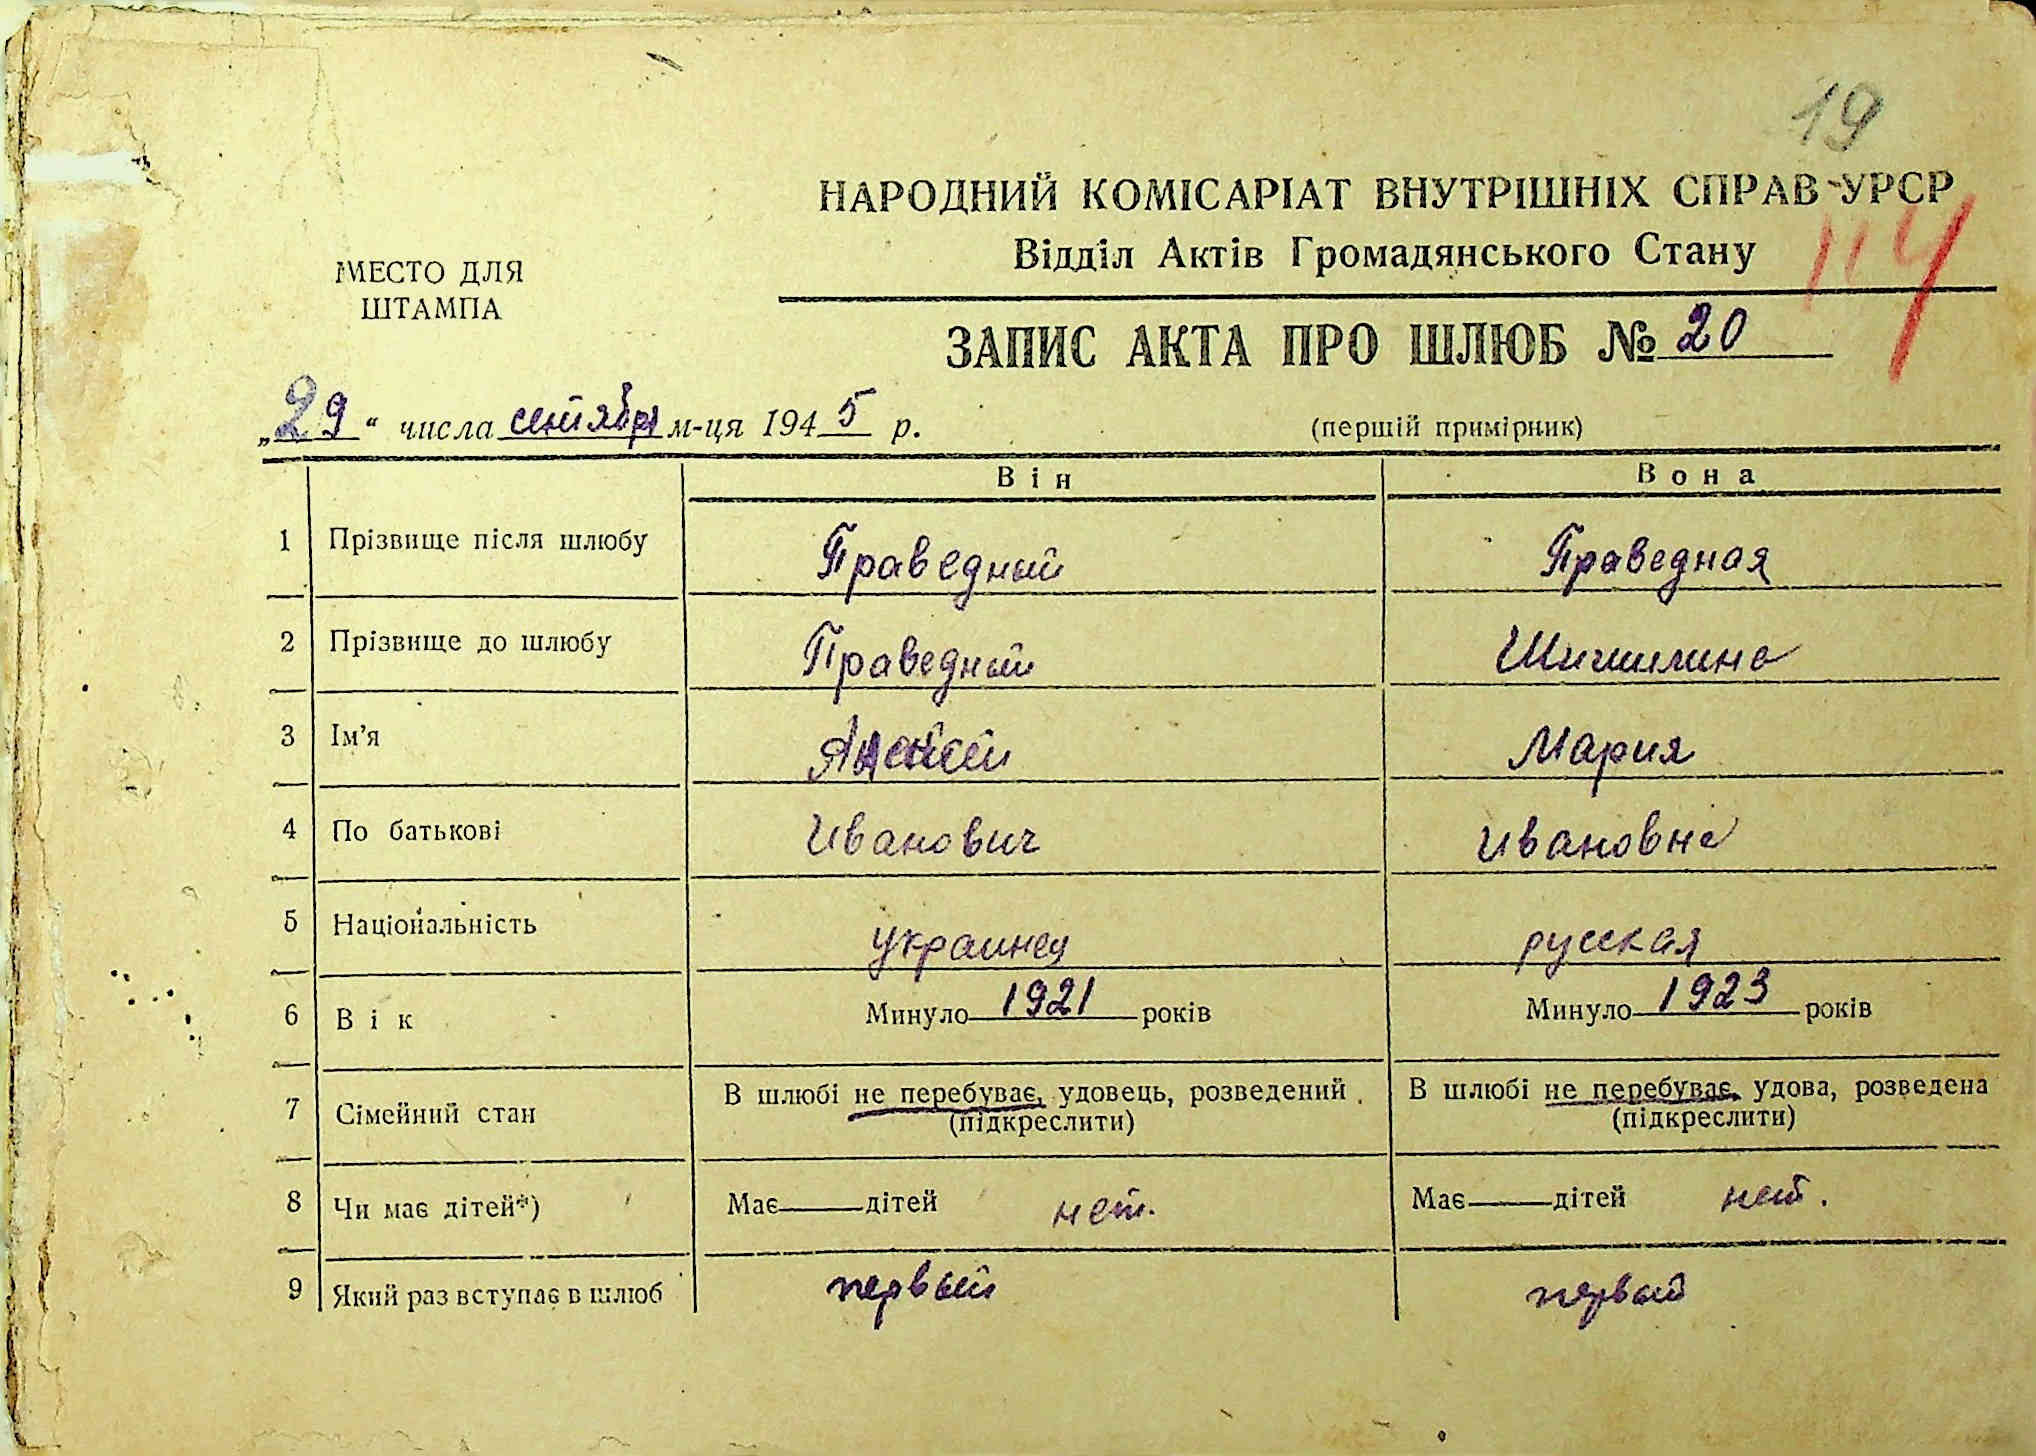 19
НАРОДНИЙ КОМІСАРІАТ ВНУТРІШНІХ СПРАВ УРСР
Відділ Актів Громадянського Стану
114
МЕСТО ДЛЯ
ШТАМПА
ЗАПИС АКТА ПРО ШЛЮБ № 20
„29“ числа сентября м-ця 1945 р.
(першій примірник)
Він Вона
1 Прізвище після шлюбу Праведный Праведная
2 Прізвище до шлюбу Праведный
3 Ім’я Алексей Мария
4 По батькові Иванович Ивановна
5 Національність украинец русская
6 Вік Минуло 1921 років Минуло 1923 років
7 Сімейний стан В шлюбі не перебуває, удовець, розведений (підкреслити) В шлюбі не перебуває, удова, розведена (підкреслити)
8 Чи має дітей*) Має дітей нет. Має дітей нет.
9 Який раз вступає в шлюб первый первый